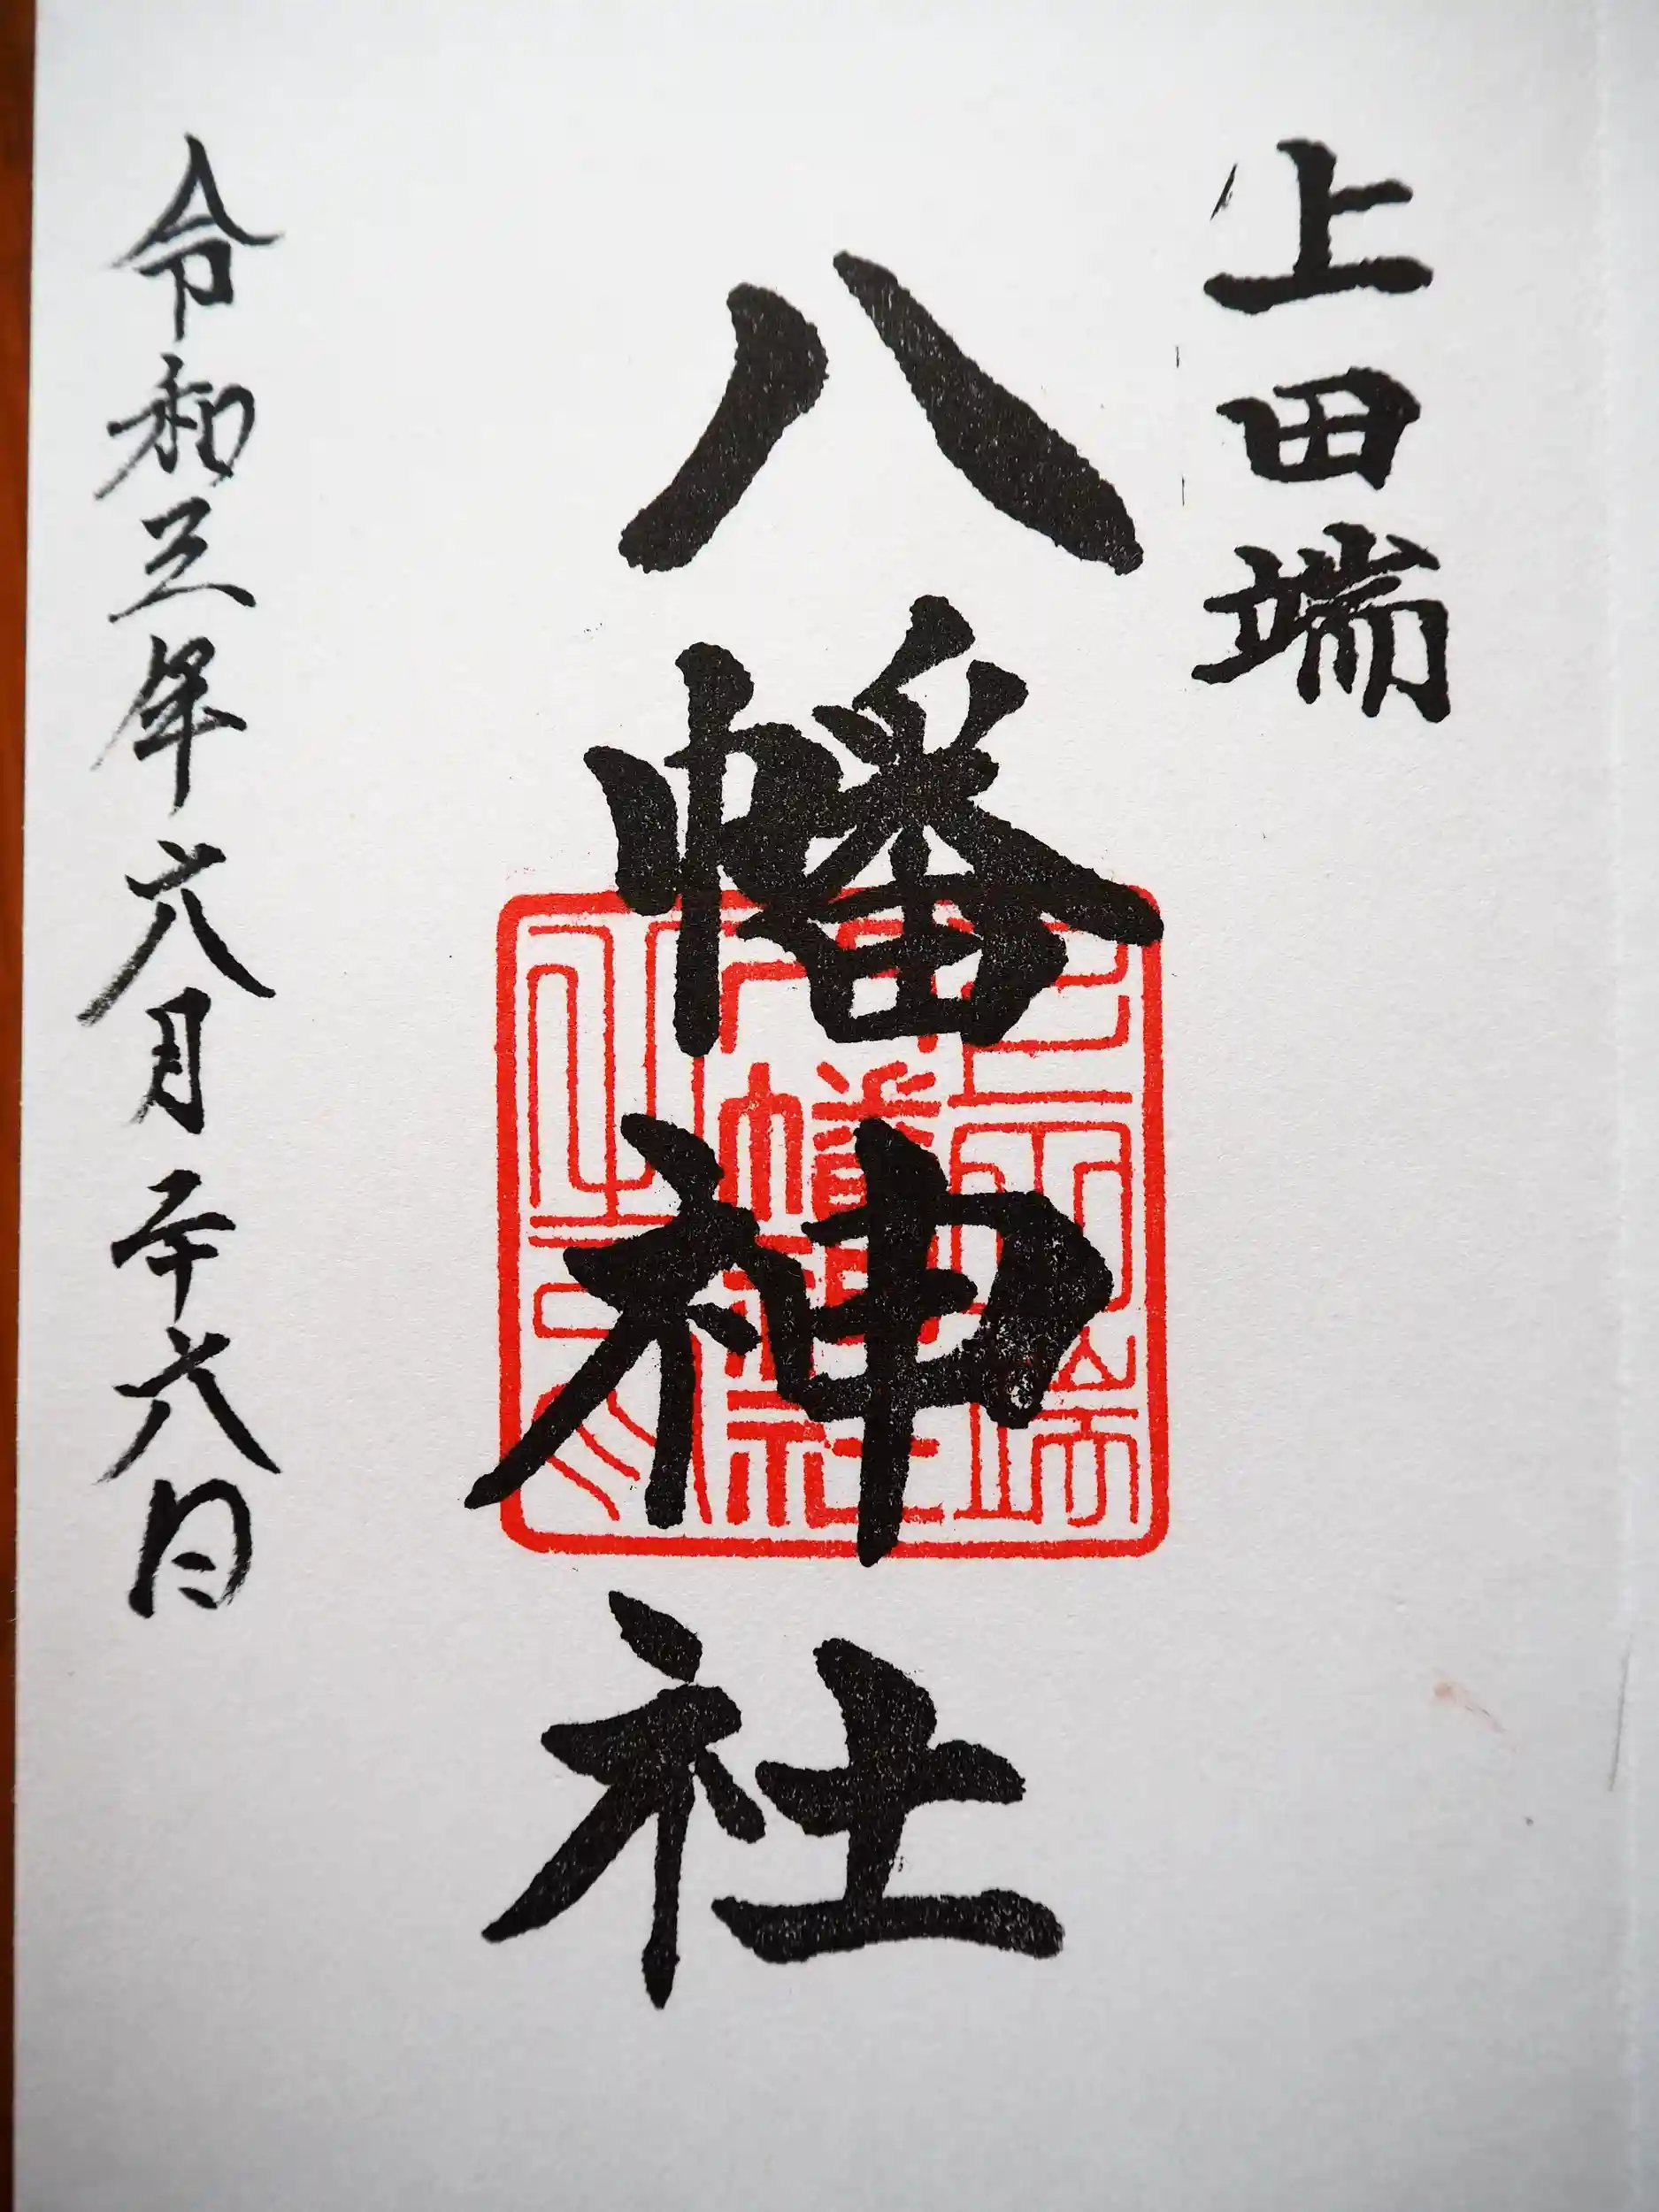 上田端
八幡神社
令和三年六月二十六日
上田端
八幡神社
之印